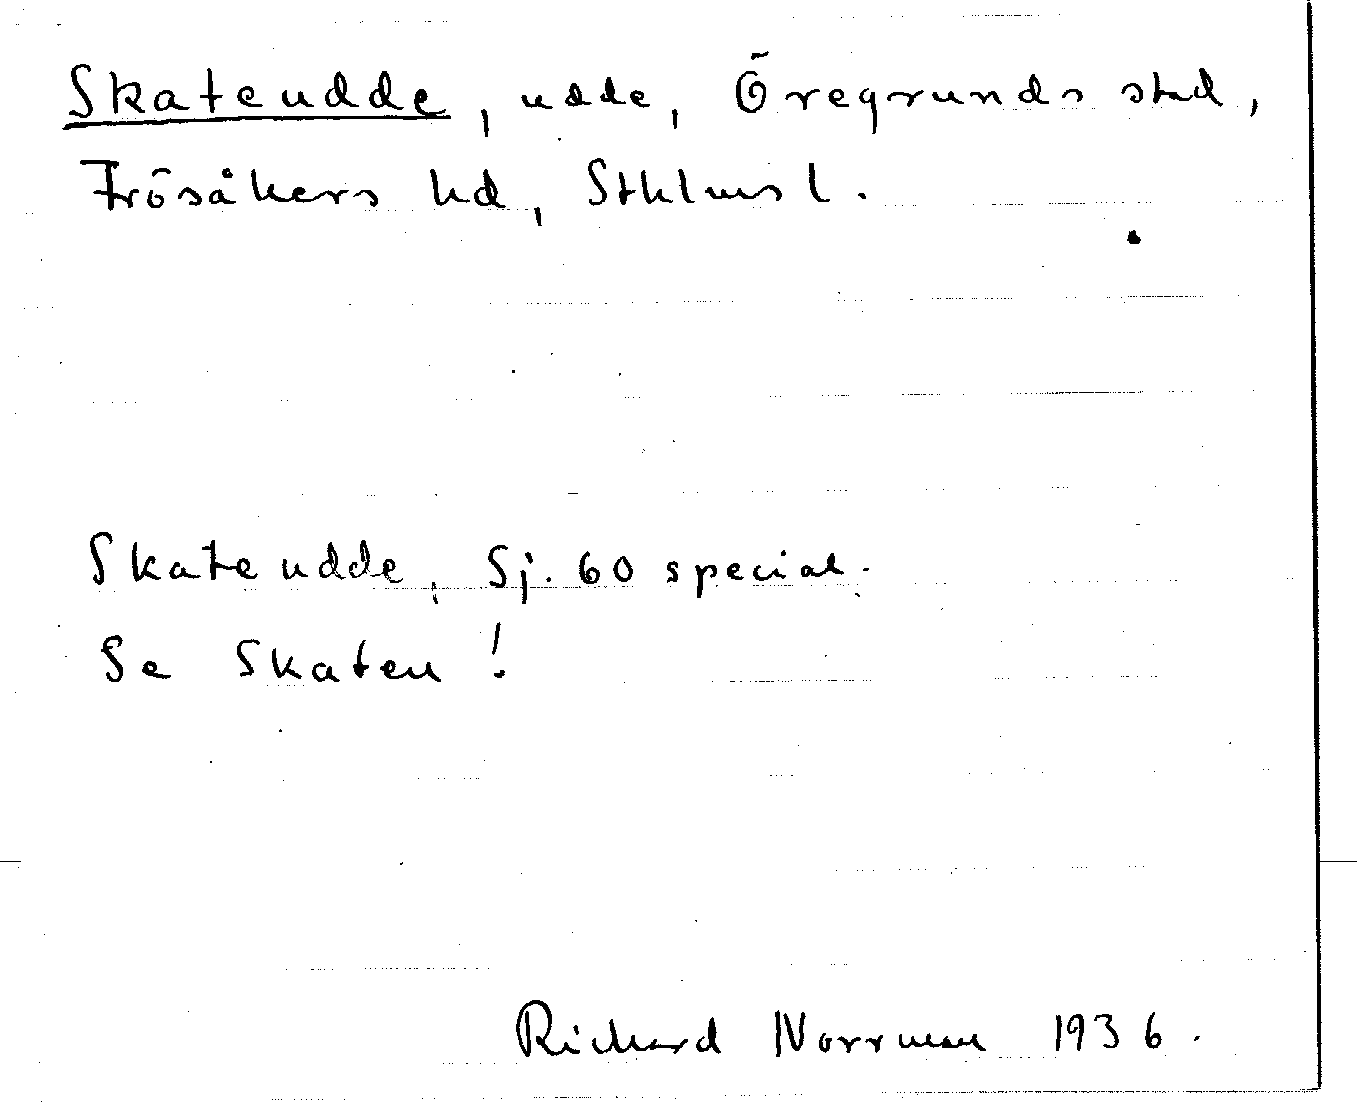 Skateudde, udde, Öregrunds stad,
Frösåkers hd, Sthlms l.
Skateudde, Sj. 60 special.
Se Skaten!
Richard Norrman 1936.